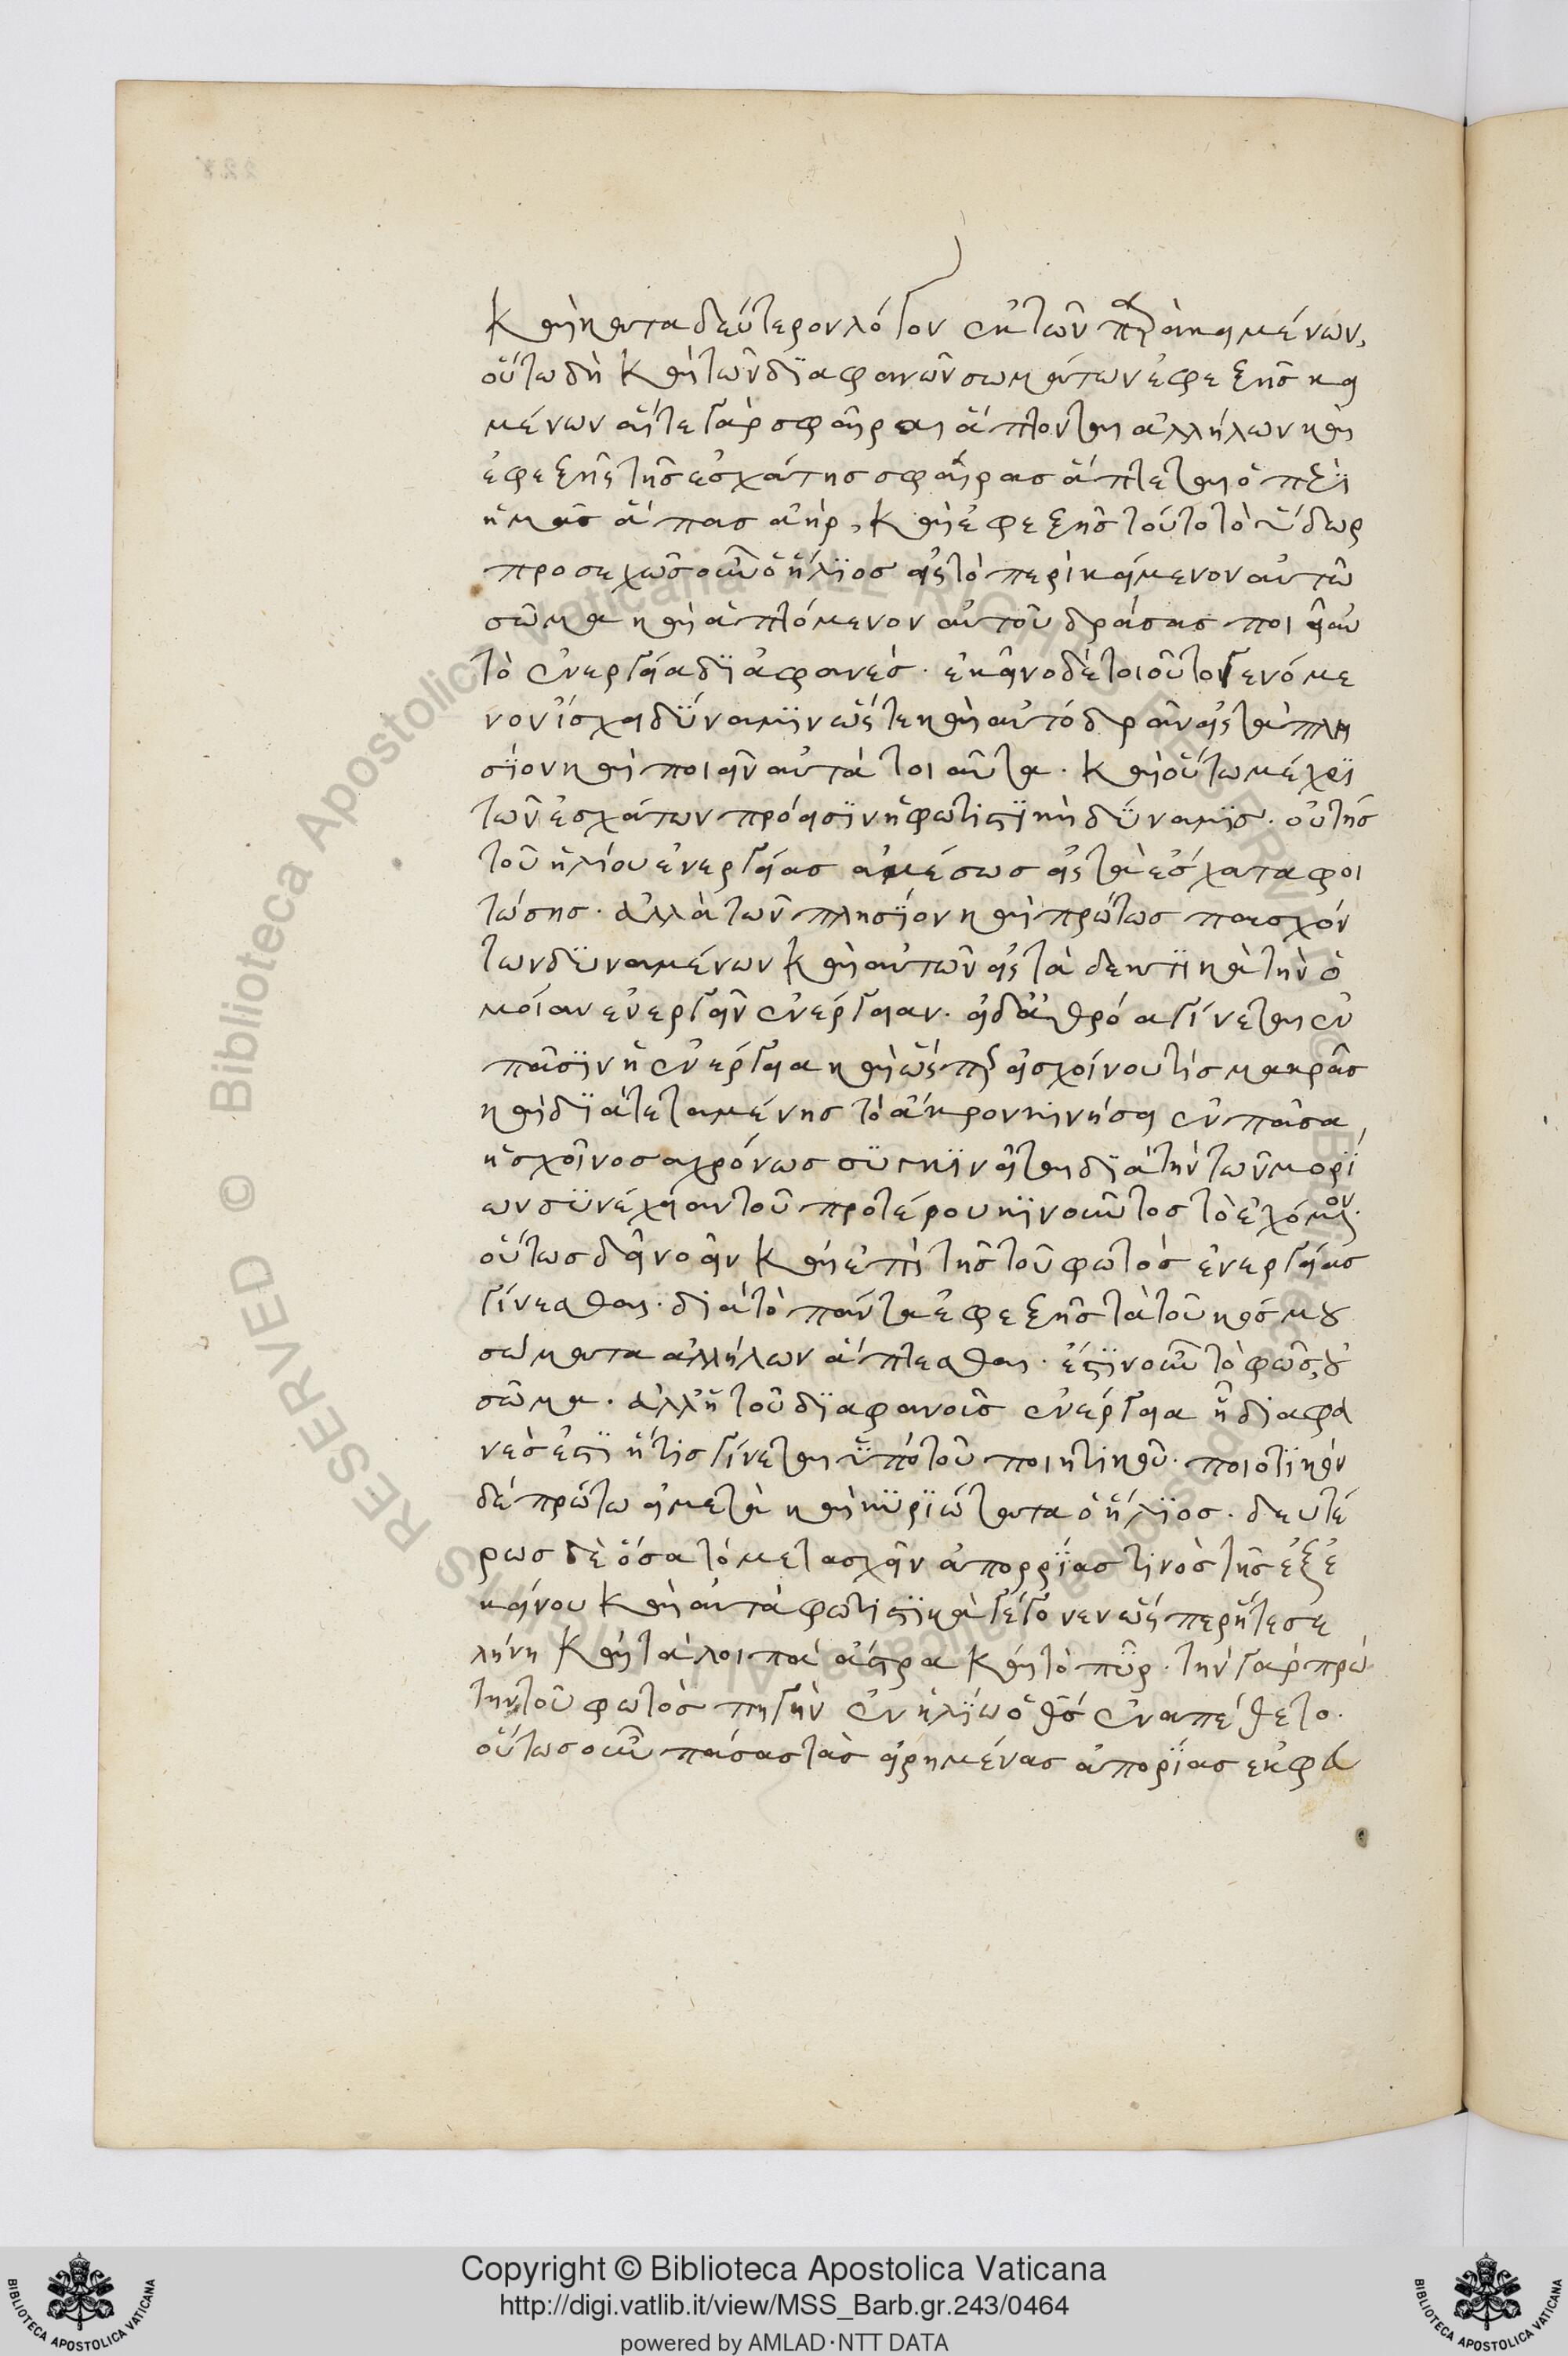 καὶ κατα δεύτερον λόγον ἐκ τῶν παρακειμένων,
οὕτω δὴ καὶ τῶν διαφανῶν σωμάτων ἐφεξῆς κει
μένων αἵτε γὰρ σφαῖραι ἅπτονται ἀλλήλων καὶ
ἐφεξῆς τῆς ἐσχάτης σφαίρας ἅπτεται ὁ περὶ
ἡμᾶς ἅπας ἀὴρ, καὶ ἐφεξῆς τούτο τὸ ὕδωρ
προσεχῶς οὖν ὁ ἥλιος εἰς τὸ περικείμενον αὐτῶ
σῶμα καὶ ἁπτόμενον αὐτοῦ δράσας ποιεῖ αὐ
τὸ ἐνεργεία διαφανές. ἐκεῖνο δὲ τοιοῦτο γενόμε
νον ἴσχει δύναμιν ὥστε καὶ αὐτό δρᾶν εἰς τὰ πλη
σίον καὶ ποιεῖν αὐτὰ τοιαῦτα. καὶ οὕτω μέχρι
τῶν ἐσχάτων πρόεισιν ἡ φωτιστικὴ δύναμις. οὐ τῆς
τοῦ ἡλίου ἐνεργείας ἀμέσως εἰς τὰ ἔσχατα φοι
τώσης. ἀλλὰ τῶν πλησίον καὶ πρώτως πασχόν
των δυναμένων καὶ αὐτῶν εἰς τὰ δεκτικὰ τὴν ὁ
μοίαν ἐνεργεῖν ἐνέργειαν. εἰ δ' ἀθρόα γίνεται ἐν
πᾶσιν ἡ ἐνέργεια καὶ ὥσπερ εἰ σχοίνου τὶς μακρᾶς
καὶ διατεταμένης τὸ ἄκρον κινήσει ἐν πᾶσα
ἡ σχοῖνος ἀχρόνως συγκινεῖται διὰ τὴν τῶν μορί
ων συνέχειαν τοῦ προτέρου κινοῦντος τὸ ἐχόμενον.
οὕτως δεῖ νοεῖν καὶ ἐπὶ τῆς τοῦ φωτὸς ἐνεργείας
γίνεσθαι. διὰ τὸ πάντα ἐφεξῆς τὰ τοῦ κόσμου
σώματα ἀλλήλων ἅπτεσθαι. ἔστιν οὖν τὸ φῶς, οὐ
σῶμα. ἀλλ' ἡ τοῦ διαφανοῦς ἐνέργεια ἧ διαφα
νές ἐστι ἥτις γίνεται ὑπὸ τοῦ ποιητικοῦ. ποιοτικόν
δὲ πρώτω εἰ μετὰ καὶ κυριώτατα ὁ ἥλιος. δευτέ
ρως δὲ ὅσα τὸ μετασχεῖν ἀπορρίας τινὸς τῆς ἐξ ἐ
κείνου καὶ αὐτὰ φωτιστικὰ γέγονεν ὥσπερ ἥτε σε
λήνη καὶ τὰ λοιπὰ ἄστρα καὶ τὸ πῦρ. τὴν γὰρ πρώ
την τοῦ φωτὸς πηγὴν ἐν ἡλίω ὁ θς ἐναπέθετο.
οὕτως οὖν πάσας τὰς εἰρημένας ἀπορίας ἐκφα
Copyright © Biblioteca Apostolica Vaticana
http://digi.vatlib.it/view/MSS_Barb.gr.243/0464
powered by AMLAD·NTT DATA